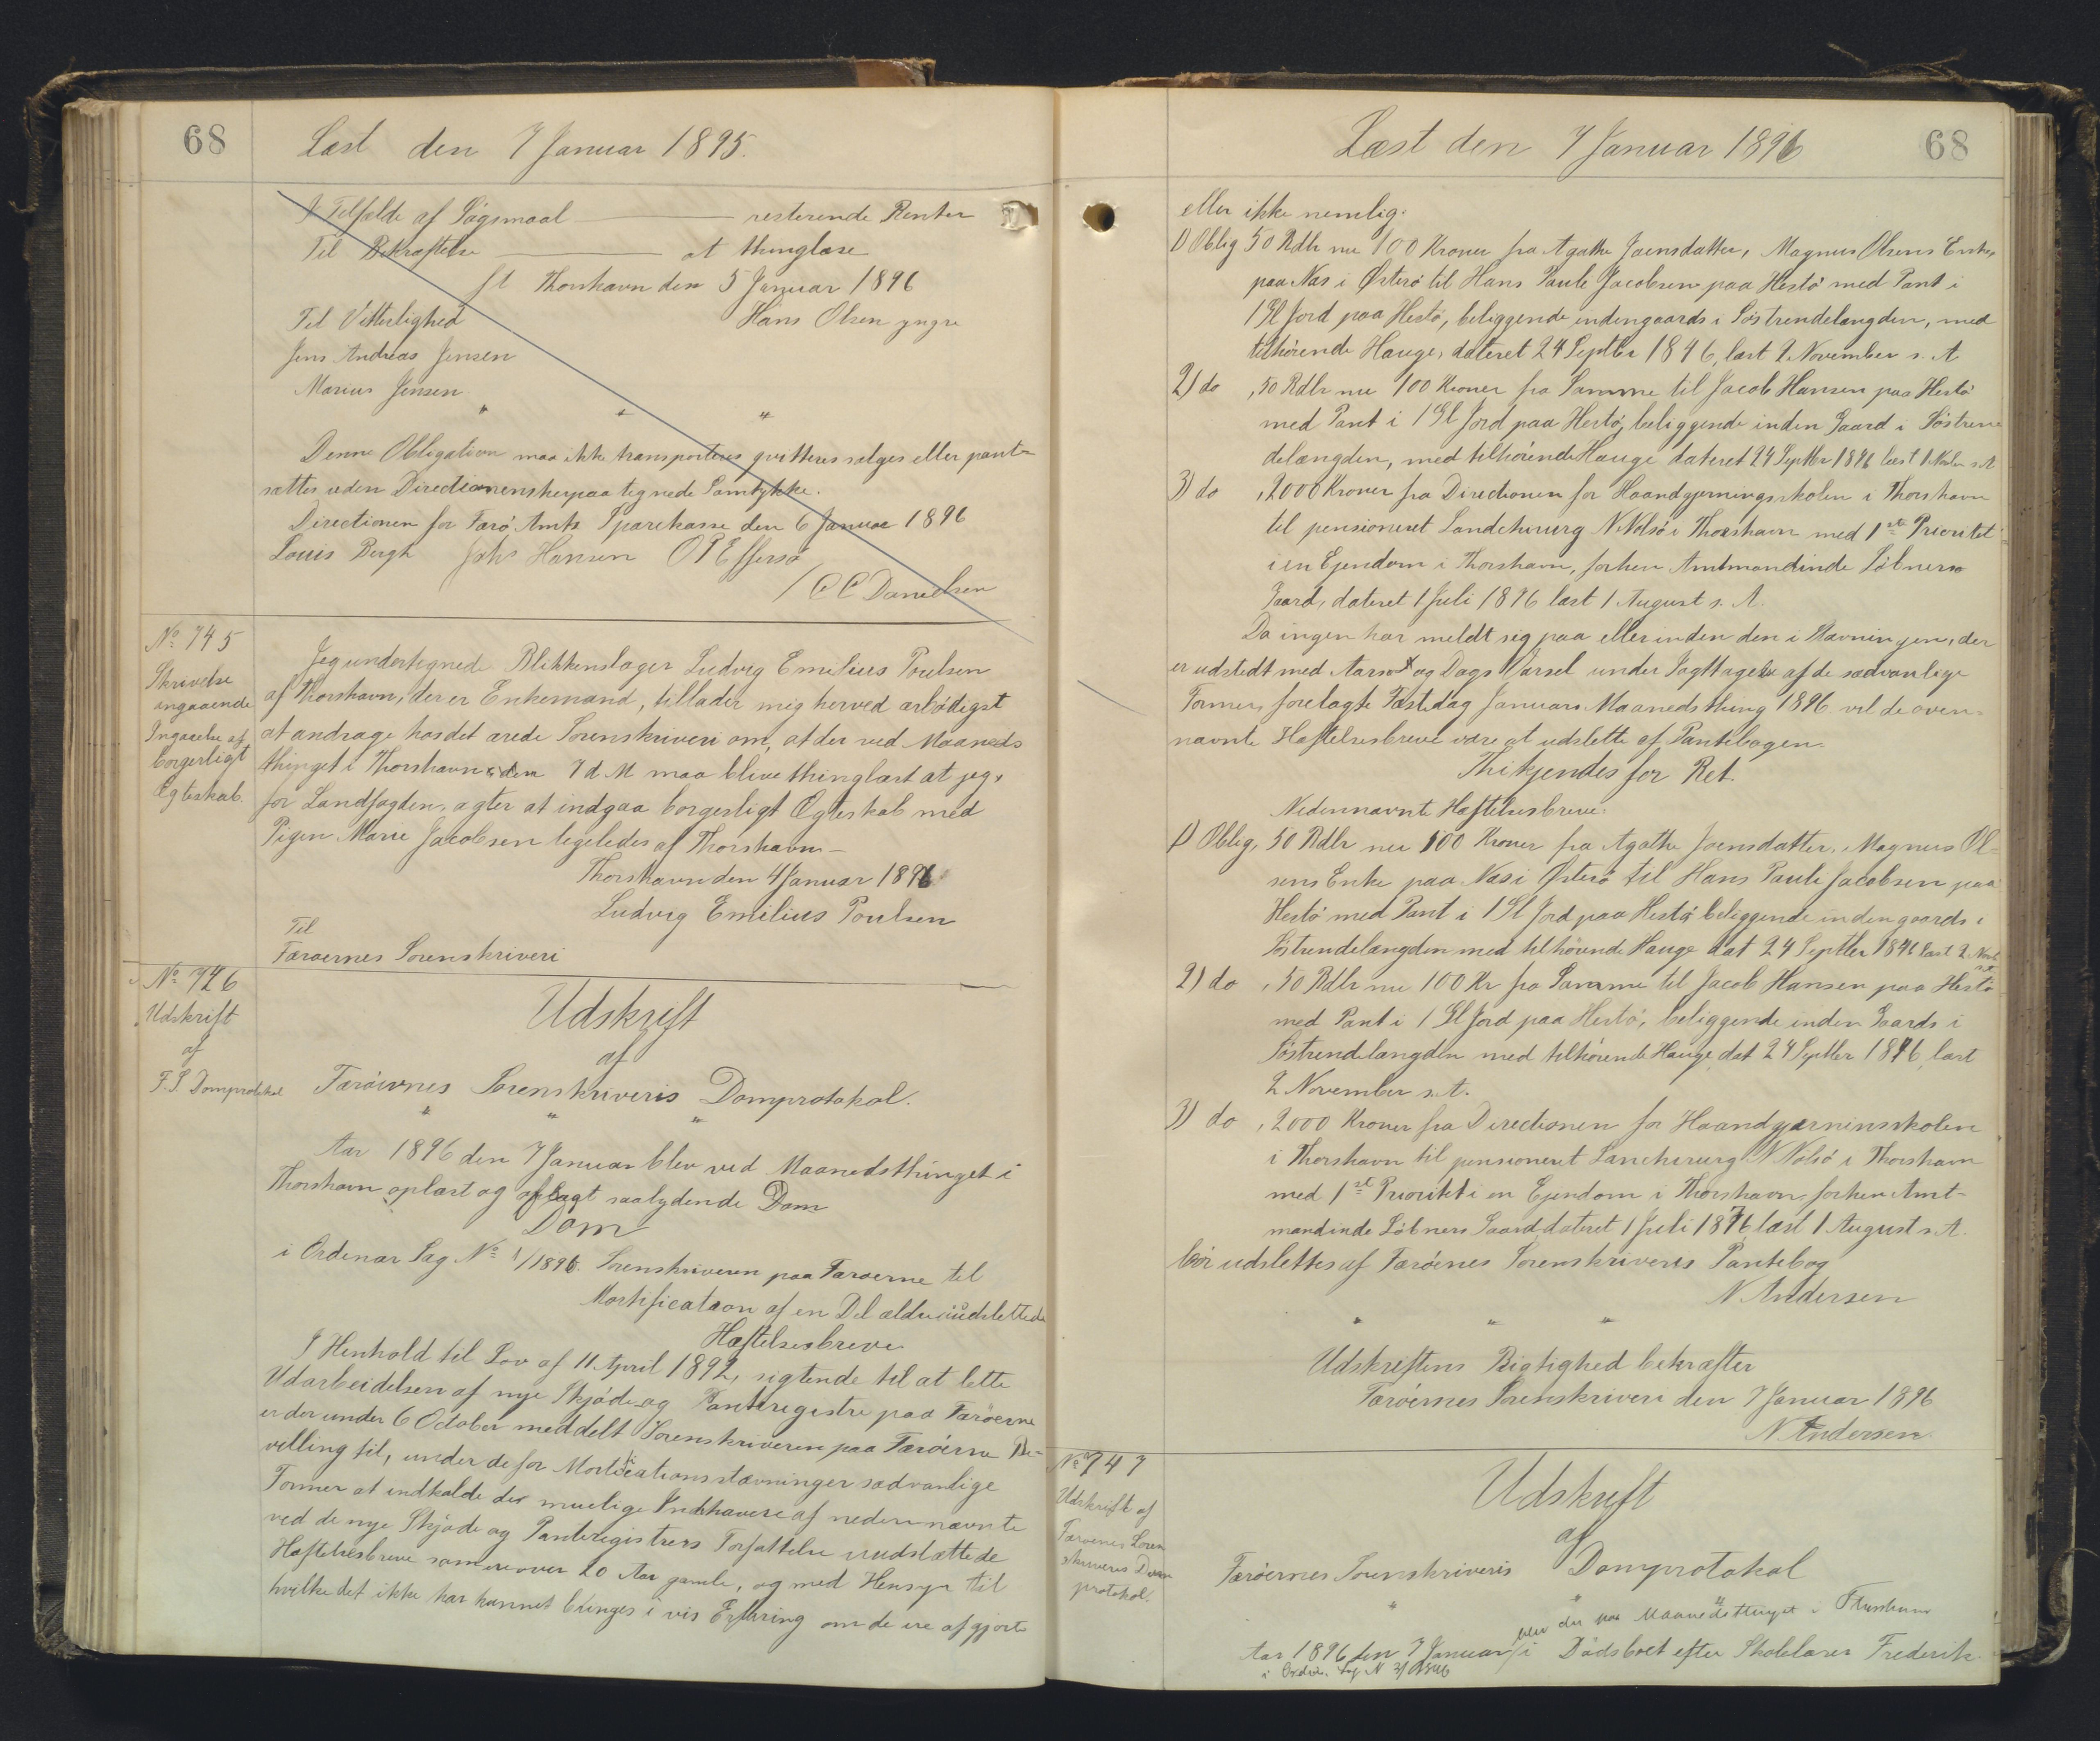 68
Læst den 7 Januar 1895.
I Tilfælde af Søgsmaal — resterende Renter
Til Bekræftelse — at thinglæse
ft Thorshavn den 5 Januar 1896
Til Vitterlighed Hans Olsen yngre
Jens Andreas Jensen
Marius Jensen
" " "
Denne Obligation maa ikke transporteres qvitteres sælges eller pant-
sættes uden Directionens herpaa tegnede Samtykke.
Directionen for Færø Amts Sparekasse den 6 Januar 1896
Louis Bergh Johs Hansen O P Effersø
/ C C Danielsen
No 745
Skrivelse
angaaende
Ingaaelse af
borgerligt
Ægteskab.
Jeg undertegnede Blikkenslager Ludvig Emilius Poulsen
af Thorshavn, der er Enkemand, tillader mig herved ærbødigst
at andrage hos det ærede Sorenskriveri om, at der ved Maaneds
thinget i Thorshavn den 7 d M maa blive thinglæst at jeg,
for Landfogden, agter at indgaa borgerligt Ægteskab med
Pigen Marie Jacobsen ligeledes af Thorshavn —
Thorshavn den 4 Januar 1896
Ludvig Emilius Poulsen
Til
Færøernes Sorenskriveri
No 746
Udskrift
af
F. S. Domprotokol
Udskrift
af
Færøernes Sorenskriveris Domprotokol.
" " "
Aar 1896 den 7 Januar blev ved Maanedsthinget i
Thorshavn oplæst og aflagt saalydende Dom
Dom
i Ordinær Sag No 1/1896. Sorenskriveren paa Færøerne til
Mortification af en Del ældre uudslettede
Hæftelsesbreve
I Henhold til Lov af 11 April 1892, sigtende til at lette
Udarbeidelsen af nye Skjøde og Panteregistre paa Færøerne
er der under 6 October meddelt Sorenskriveren paa Færøerne Be-
villing til, under de for Mortificationsstævninger sædvanlige
Former at indkalde de muelige Indehavere af nedennævnte
ved de nye Skjøde og Panteregistres Forfattelse uudslættede
Hæftelsesbreve som ere over 20 Aar gamle, og med Hensyn til
hvilke det ikke har kunnet bringes i vis Erfaring om de ere afgjorte
Læst den 7 Januar 1896
68
eller ikke nemlig:
1) Oblig 50 Rdlr nu 100 Kroner fra Agathe Joensdatter, Magnus Olsens Enke,
paa Næs i Østerø til Hans Paule Jacobsen paa Hestø med Pant i
1 Gl Jord paa Hestø, beliggende indengaards i Søstrendelængden, med
tilhørende Hauge, dateret 24 Septbr 1846, læst 2 November s. A
2) do , 50 Rdlr nu 100 Kroner fra Samme til Jacob Hansen paa Hestø
med Pant i 1 Gl Jord paa Hestø, beliggende inden Gaard i Søstren
delængden, med tilhørende Hauge dateret 24 Septbr 1846 læst s A
3) do , 2000 Kroner fra Directionen for Haandgjerningsskolen i Thorshavn
til pensioneret Landchirurg N Nolsø i Thorshavn med 1ste Prioritet
i en Ejendom i Thorshavn, forhen Amtmandinde Løbners
Gaard, dateret 1 Juli 1876 læst 1 August s. A.
Da ingen har meldt sig paa eller inden den i Stævningen, der
er udstedt med Aars og Dags Varsel under Iagttagelse af de sædvanlige
Former, forelagte Tæstedag Januars Maanedsthing 1896 vil de oven-
nævnte Hæftelsesbreve være at udslette af Pantebogen.
Thi kjendes for Ret.
Nedennævnte Hæftelsesbreve:
1) Oblig, 50 Rdlr nu 100 Kroner fra Agathe Joensdatter, Magnus Ol-
sens Enke paa Næs i Østerø til Hans Paule Jacobsen paa
Hestø med Pant i 1 Gl Jord paa Hestø beliggende inden gaards i
Søstrendelængden med tilhørende Hauge dat 24 Septbr 1846 læst 2 Novbr
s A
2) do , 50 Rdlr nu 100 Kr fra Samme til Jacob Hansen paa Hestø
med Pant i 1 Gl Jord paa Hestø, beliggende inden Gaards i
Søstrendelængden med tilhørende Hauge, dat 24 Septbr 1846, læst
2 November s. A.
3) do , 2000 Kroner fra Directionen for Haandgjærninsskolen
i Thorshavn til pensioneret Lanchirurg N Nolsø i Thorshavn
med 1ste Prioritet i en Ejendom i Thorshavn, forhen Amt-
mandinde Løbners Gaard, dateret 1 Juli 1876, læst 1 August s. A.
bør udslettes af Færøernes Sorenskriveris Pantebog
N Andersen
" " "
Udskriftens Rigtighed bekræfter
Færøernes Sorenskriveri den 7 Januar 1896
N Andersen.
No 747
Udskrift af
Færøernes Soren
skriveris Dom
protokol.
Udskrift
af
Færøernes Sorenskriveris Domprotokol
" " "
blev der paa Maanedsthinget i Thorshavn
Aar 1896 den 7 Januar / i Dødsboet efter Skolelærer Frederik
i Ordin. Sag N 3/1896